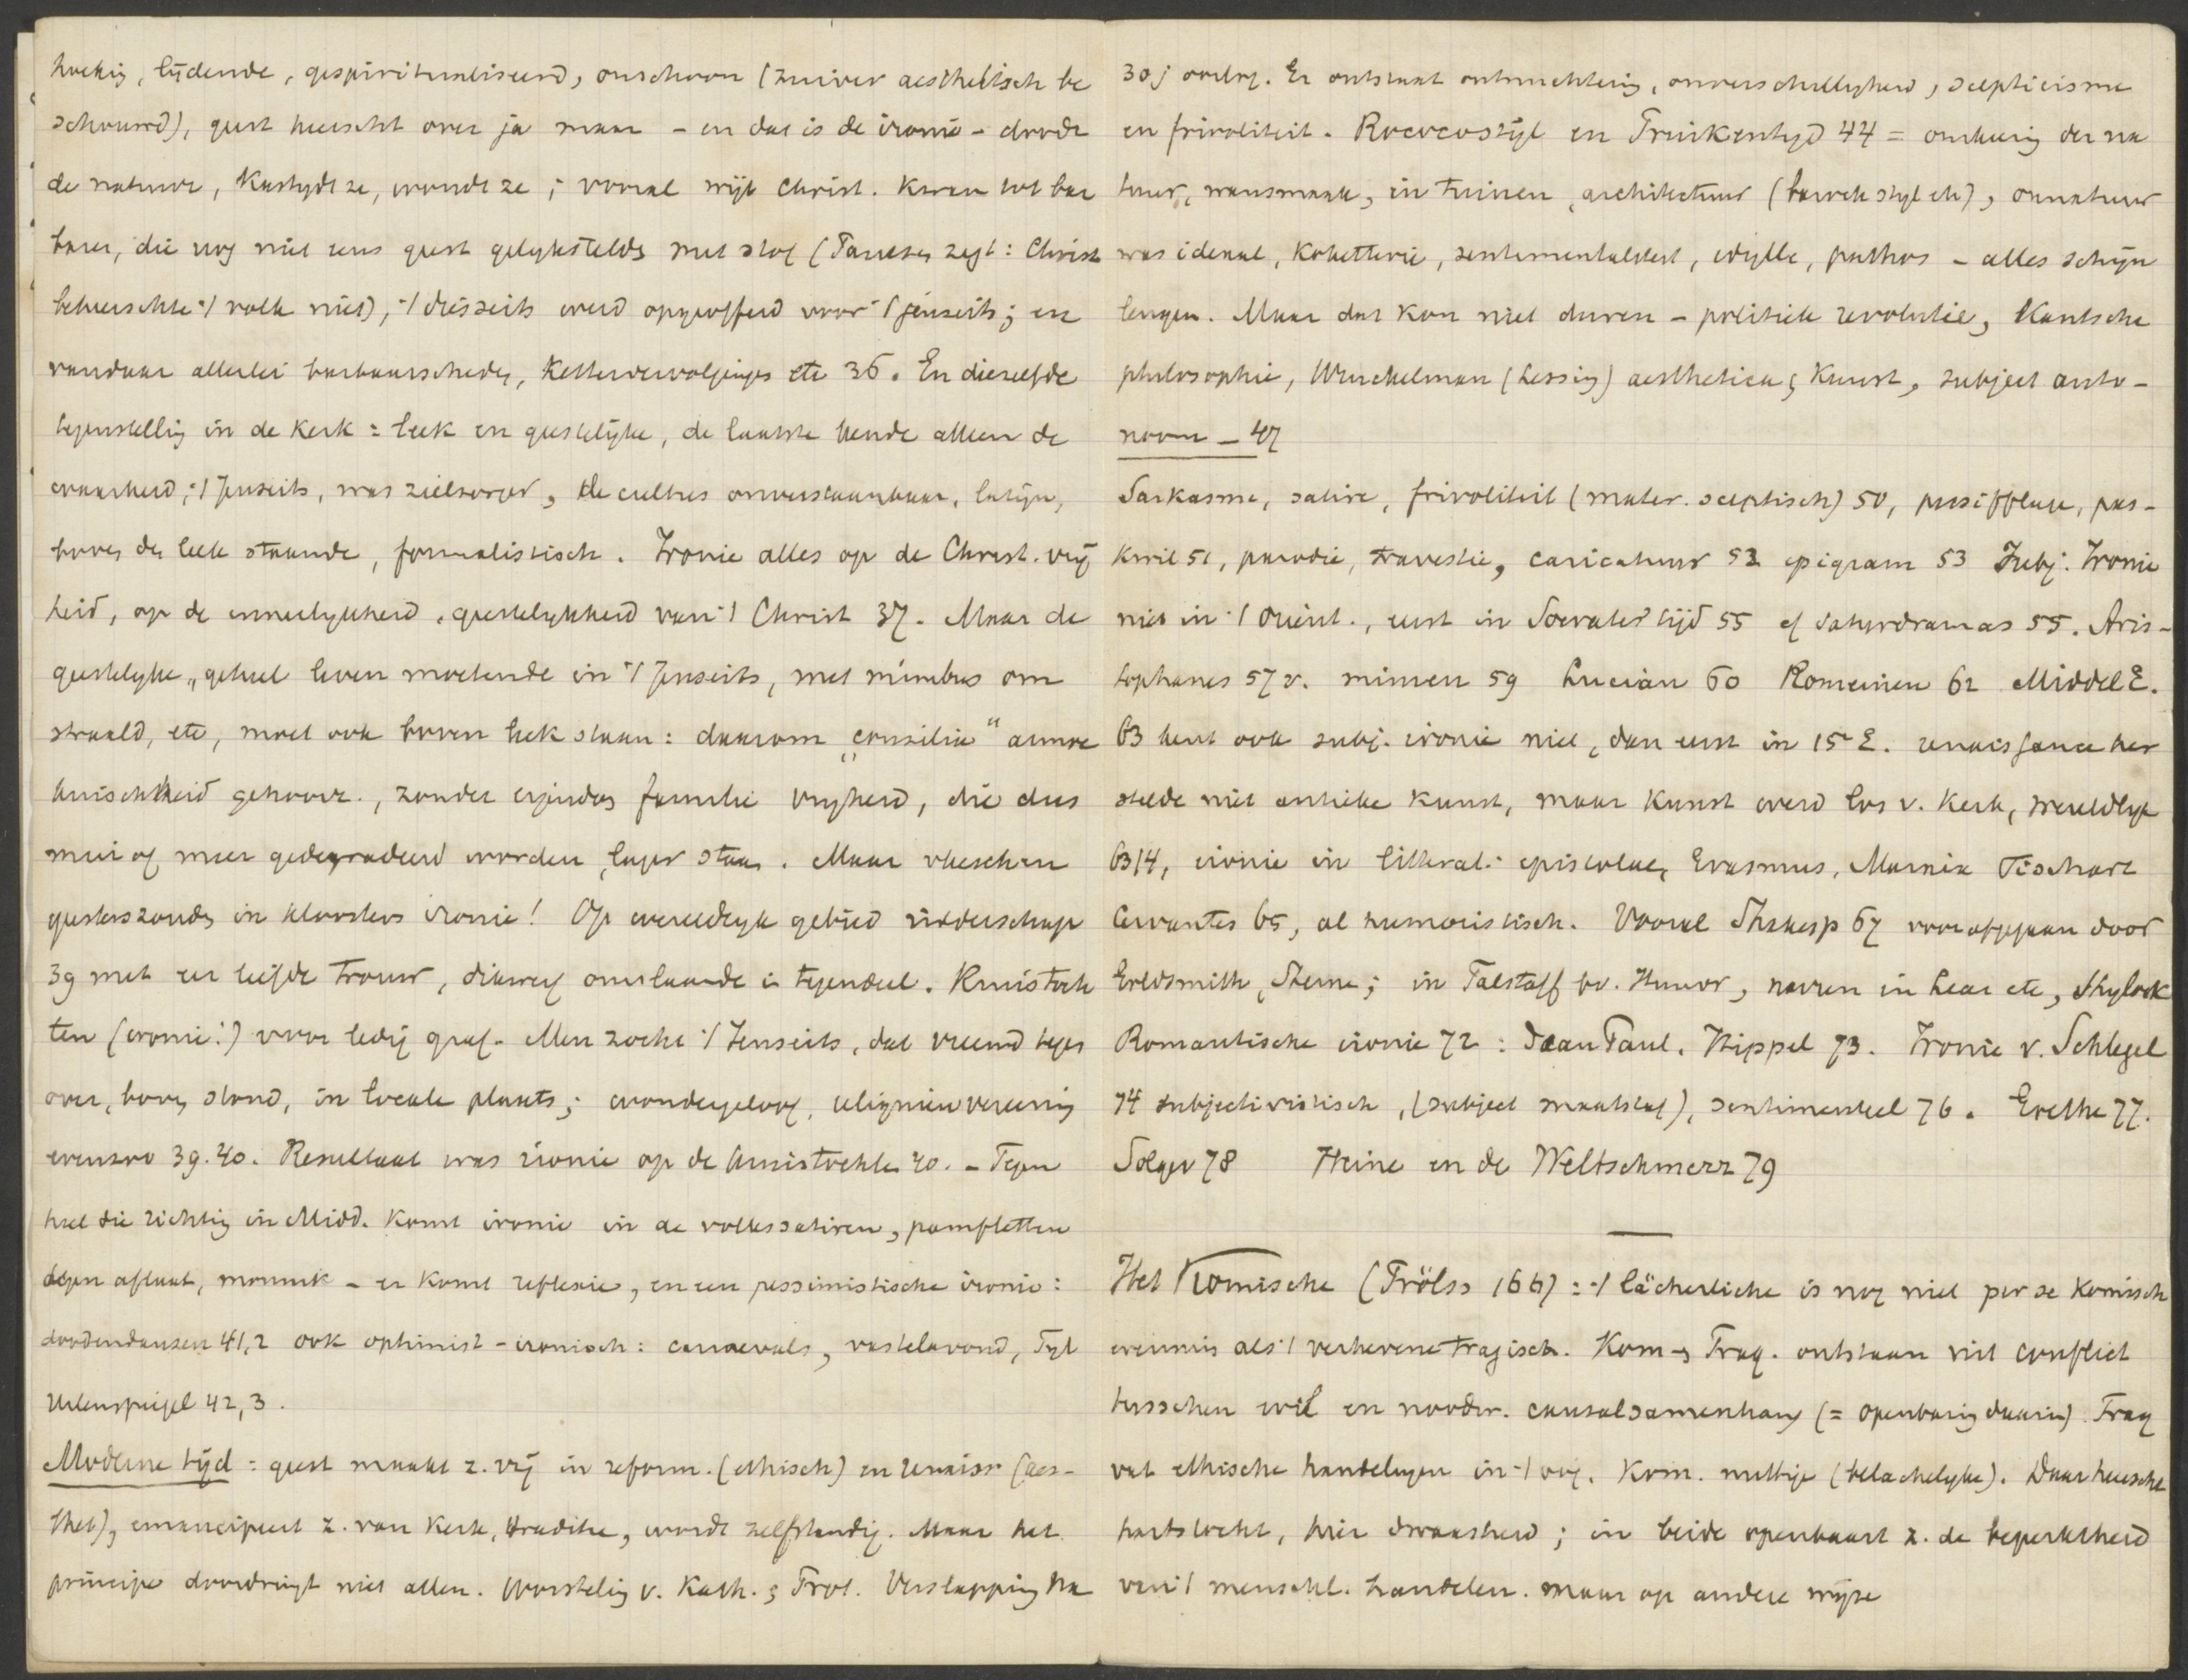 hoekig, lijdende, gespiritualiseerd, onschoon (zuiver aesthetisch be
schouwd), geest heerscht over ja maar - en dat is de ironie - doodt
de natuur, kastijdt ze, wondt ze; vooral wijl Christ. kwam tot bar
baren, die nog niet eens geest gelijkstelde met stof ( zegt: Christ
beheerschte 't volk niet), 't diesseits werd opgeofferd voor 't jenseits; en
vandaar allerlei barbaarscheden, kettervervolgingen etc 36. En diezelfde
tegenstelling in de Kerk = leek en geestelijke, de laatste kende alleen de
waarheid, 't Jenseits, was zielzorger, de cultus onverstaanbaar, latijn,
boven de leek staande, formalistisch. Ironie alles op de Christ. vrij
heid, op de innerlijkheid, geestelijkheid van 't Christ 37. Maar de
geestelijke, geheel leven moetende in 't Jenseits, met nimbus om
straald, etc, moet ook boven leek staan: daarom "consilia" armoe
kuischheid gehoorz., zonder eigendom familie vrijheid, die dus
min of meer gedegradeerd worden, lager staan. Maar vleeschen
geesteszonden in kloosters ironie! Op wereldlijk gebied ridderschap
39 met eer liefde trouw, dikwerf omslaande in tegendeel. Kruistoch
ten (ironie!) voor ledig graf. Men zocht 't Jenseits, dat vreemd tegen
over, boven stond, in locale plaats; wondergeloof, reliquieenvereering
evenzoo 39.40. Resultaat was ironie op de kruistochten 40. - Tegen
heel die richting in Midd. komt ironie in de volkssatiren, pamfletten
tegen aflaat, monnik - er komt reflexie, en een pessimistische ironie:
doodendansen 41,2 ook optimist-ironisch: carnevals, vastelavond, Tyl
Uilenspiegel 42,3.
Moderne tijd = geest maakt z. vrij in reform. (ethisch) en renaiss (aes-
thet), emancipeert z. van Kerk, traditie, wordt zelfstandig. Maar het
principe doordringt niet allen. Worsteling v. Kath. & Prot. Verslapping na
30j oorlog. Er ontstaat ontnuchtering, onverschilligheid, scepticisme
en frivoliteit. Rococostijl en Pruikentijd 44 = omkeering der na
tuur, wansmaak, in tuinen, architectuur (barokstijl etc), onnatuur
was ideaal, koketterie, sentimentaliteit, idylle, pathos - alles schijn
leugen. Maar dat kon niet duren - politieke revolutie, Kantsche
philosophie, Winckelman (Lessing) aesthetica, Kunst, subject auto-
noom - 47
Sarkasme, satire, frivoliteit (mater. sceptisch) 50, persifflage, pas-
kwil 51, parodie, travestie, caricatuur 52 epigram 53 Subj. Ironie
niet in 't Orient., eerst in Socrates' tijd 55 cf Saturdramas 55. Aris-
tophanes 57 v. mimen 59 Lucian 60 Romeinen 62 Middel E.
63 kent ook subj. ironie niet, dan eerst in 15e E. renaissance her
stelde niet antieke kunst, maar kunst werd los v. Kerk, wereldlijk
63/4, ironie in litterat. epistolae, Erasmus, Marnix Fischart
Cervantes 65, al humoristisch. Vooral Shakesp 67 voorafgegaan door
Goldsmith, Sterne; in Falstaff bv. Humor, narren in Lear etc, Shylock
Romantische ironie 72: Jean Paul, Hippel 73. Ironie v. Schlegel
74 subjectivistisch, (subject maatstaf), sentimenteel 76. Goethe 77.
Solger 78 Heine en de Weltschmerz 79
Het Komische (Fröls> 166) = 't lächerliche is nog niet per se komisch
evenmin als 't verhevene tragisch. Kom. & Trag. ontstaan uit conflict
tusschen wil en noodw. causalsamenhang (= openbaring daarin). Trag
vat ethische handelingen in 't oog. Kom. nuttige (belachelijke). Daar heerscht
hartstocht, hier dwaasheid; in beide openbaart z. de beperktheid
van 't menschl. handelen. maar op andere wijze